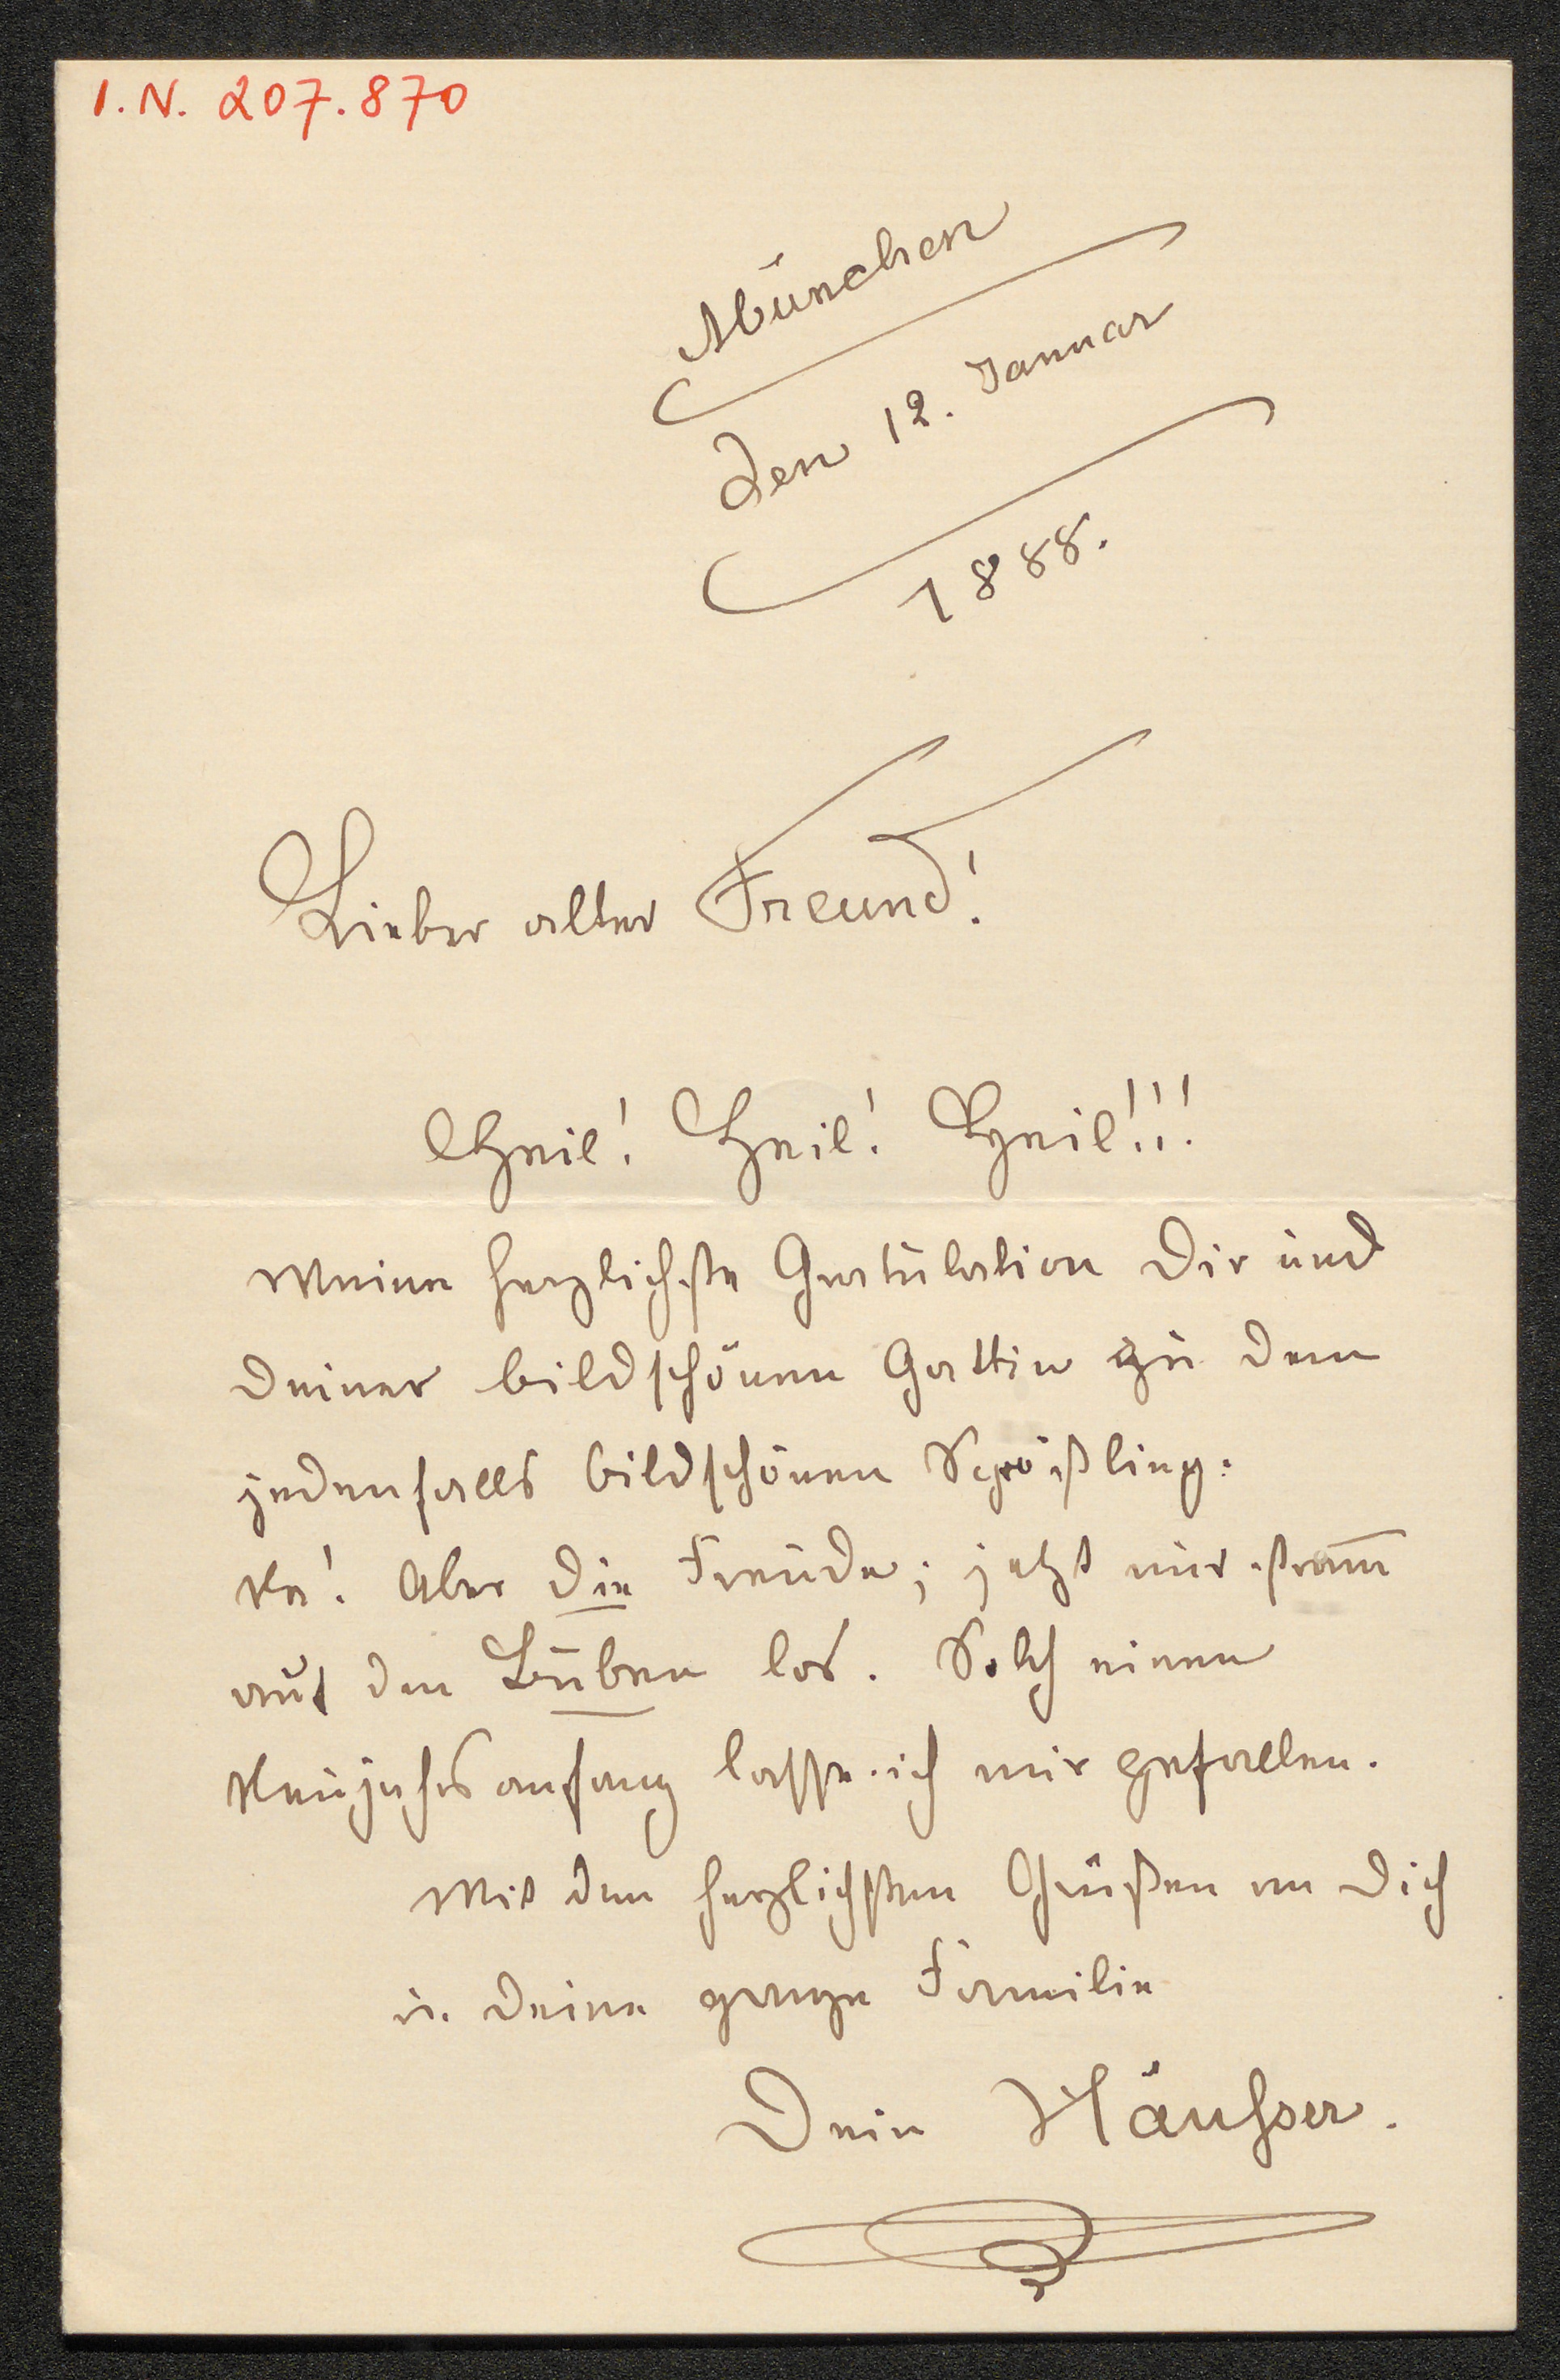 I.N. 207.870
München
Den 12. Januar
1888.
Lieber alter Freund!
Heil! Heil! Heil!!!
Meine herzlichste Gratulation Dir und
Deiner bildschönen Gattin zu dem
jedenfalls bildschönen Sprößling.
Na! Aber die Freude; jetzt nur stram̅
auf den Buben los. Solch einen
Neujahrsanfang lasse ich mir gefallen.
Mit den herzlichsten Grüßen an Dich
u. Deine ganze Familie
Dein Häusser.